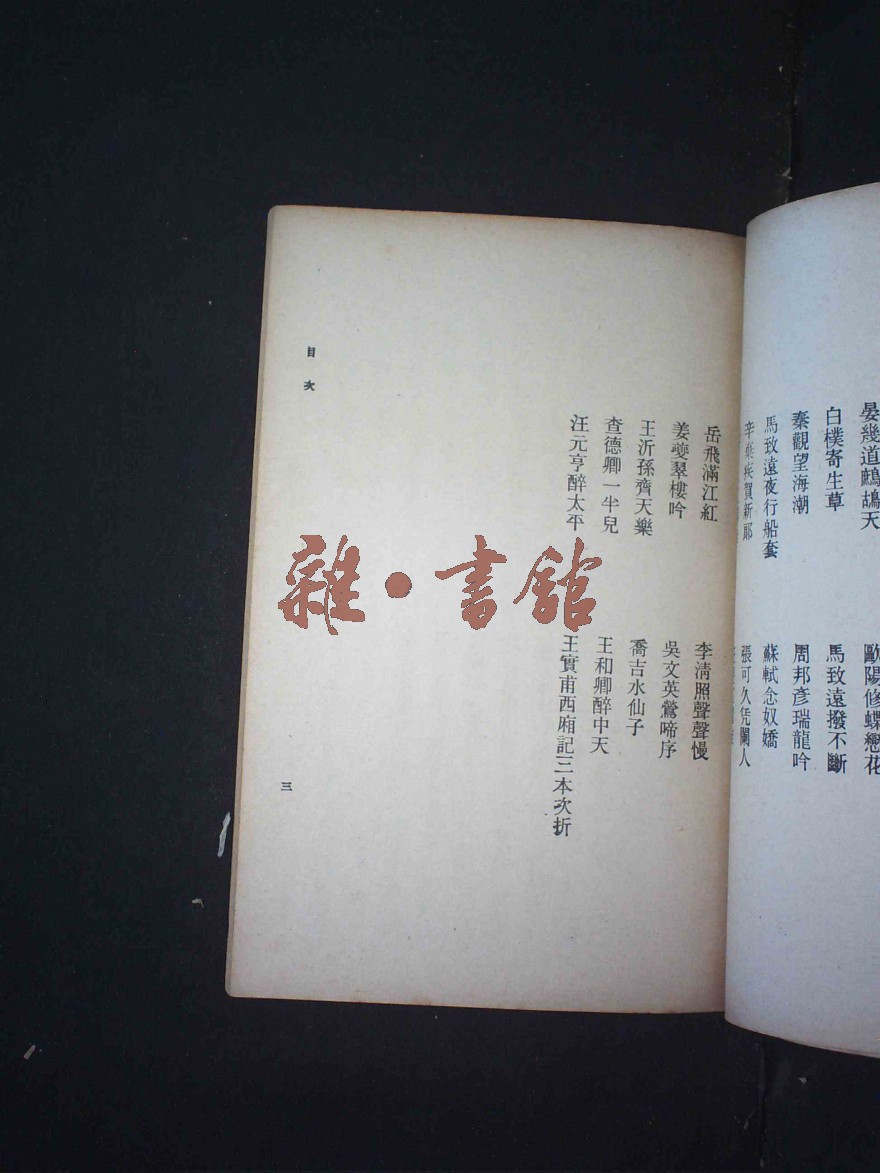 晏幾道鷓鴣天
歐陽修蝶戀花
白樸寄生草
馬致遠撥不斷
秦觀望海潮
周邦彥瑞龍吟
馬致遠夜行船套
蘇軾念奴嬌
辛棄疾賀新郎
張可久凭闌人
岳飛滿江紅
李清照聲聲慢
姜夔翠樓吟
吳文英鶯啼序
王沂孫齊天樂
喬吉水仙子
查德卿一半兒
王和卿醉中天
汪元亨醉太平
王實甫西廂記三本次折
目次
三
雜·書館